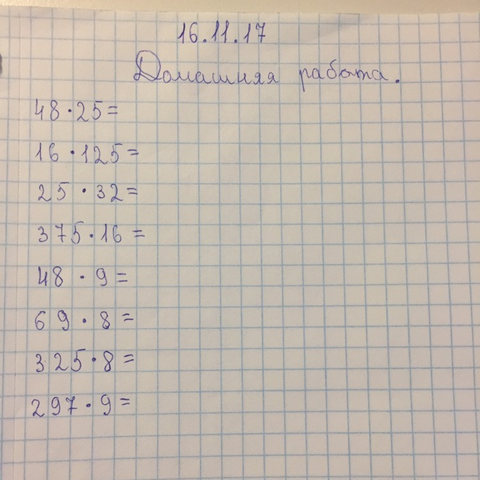 16.11.17
Домашняя работа.
48·25=
16·125=
25·32=
375·16=
48·9=
69·8=
325·8=
297·9=